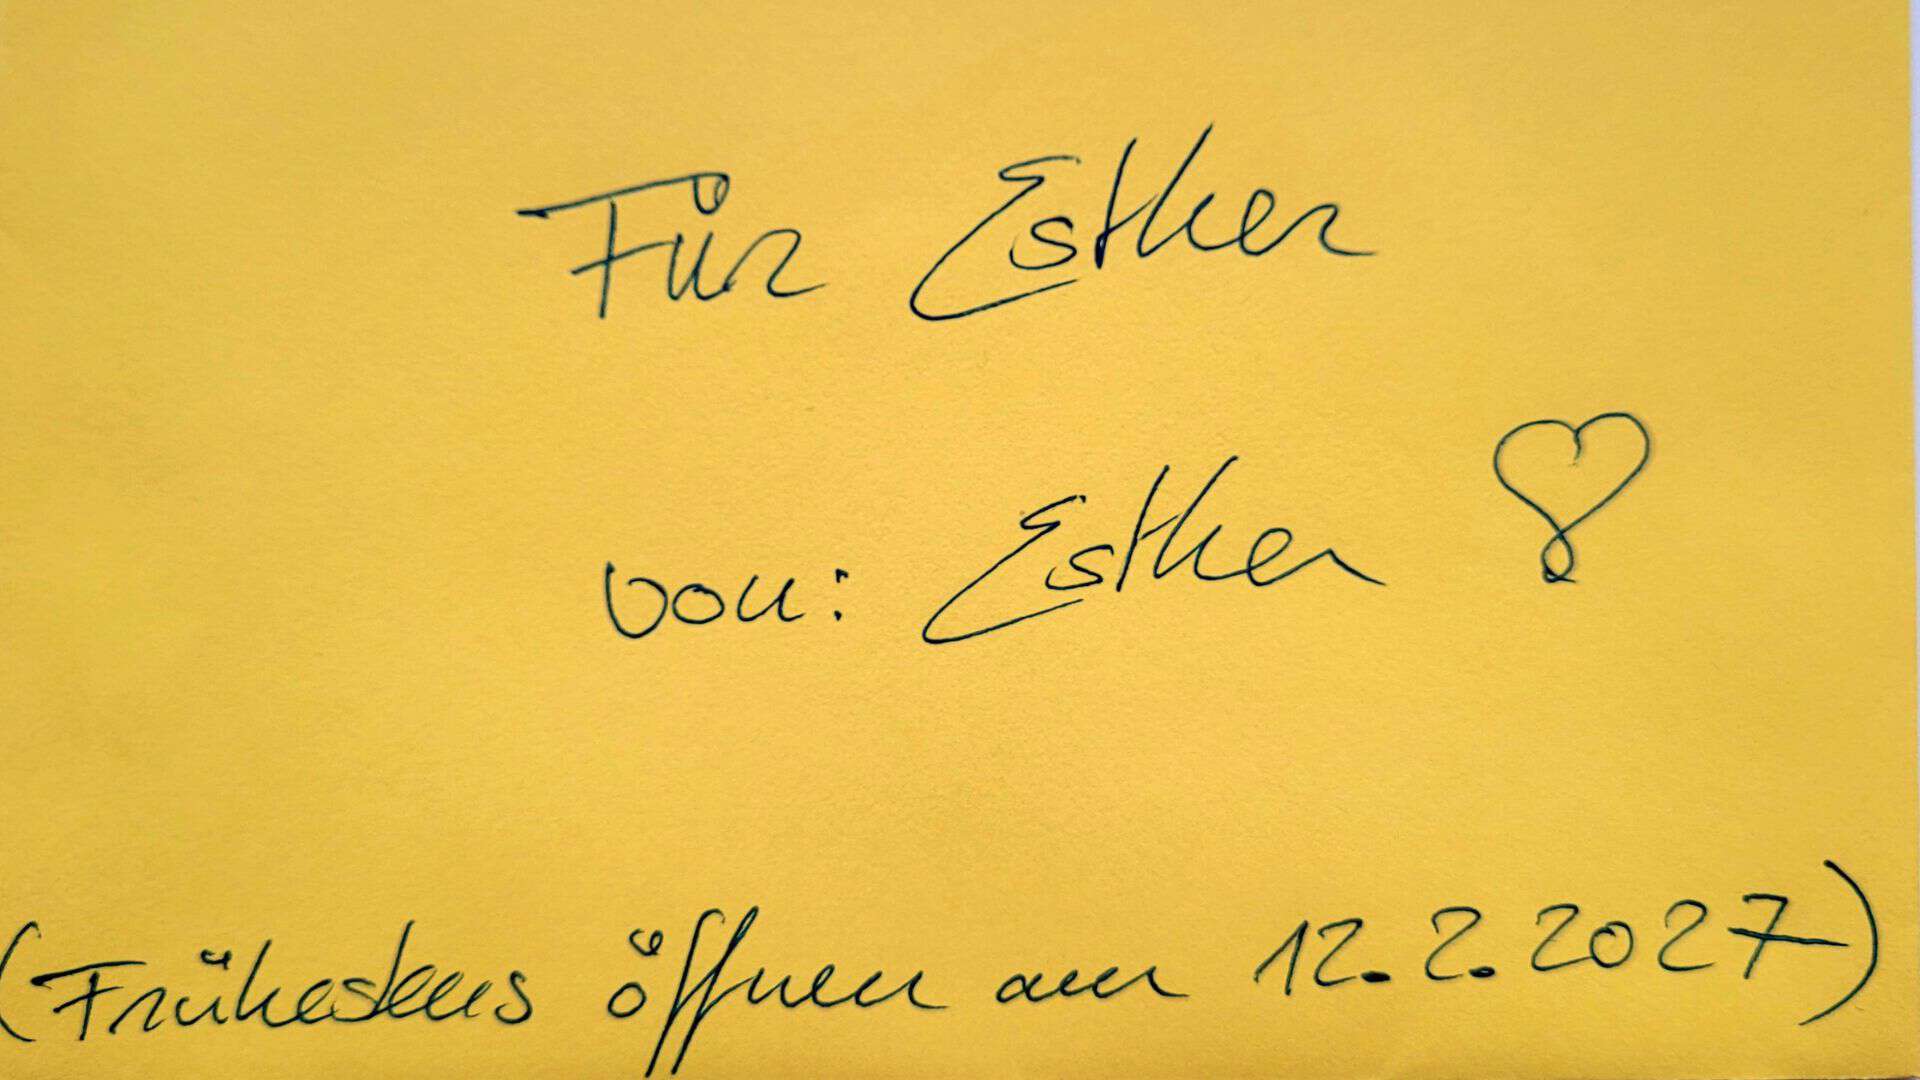 Für Esther
von: Esther
(Frühestens öffnen am 12.2.2027)